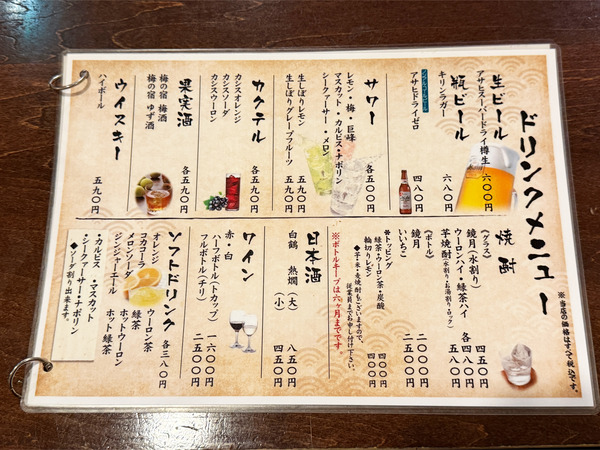 ドリンクメニュー
※当店の価格はすべて税込です。
生ビール
アサヒスーパードライ樽生 六〇〇円
瓶ビール
キリンラガー 六八〇円
ノンアルコールビール
アサヒドライゼロ 四八〇円
サワー
レモン・梅・巨峰
マスカット・カルピス・ナポリン
シークァーサー・メロン
各五〇〇円
生しぼりレモン 五九〇円
生しぼりグレープフルーツ 五九〇円
カクテル
カシスオレンジ
カシスソーダ
カシスウーロン
各五九〇円
果実酒
梅の宿 梅酒
梅の宿 ゆず酒
各五九〇円
ウイスキー
ハイボール 五九〇円
焼酎
《グラス》
鏡月(水割り) 四五〇円
ウーロンハイ・緑茶ハイ 各四八〇円
芋焼酎(水割り・お湯割り・ロック) 五八〇円
《ボトル》
鏡月 二〇〇〇円
いいちこ 二五〇〇円
※トッピング
緑茶・ウーロン茶・炭酸 四〇〇円
輪切りレモン 四〇〇円
◆芋・米・麦焼酎もございますので、
従業員までお申し付け下さい。
※ボトルキープは六ヶ月までです。
日本酒
白鶴 熱燗 (大) 八五〇円
(小) 四五〇円
ワイン
赤・白
ハーフボトル(トカップ) 一六〇〇円
フルボトル(チリ) 二五〇〇円
ソフトドリンク
オレンジ
コカコーラ
メロンソーダ
ジンジャーエール
ウーロン茶
ホットウーロン
緑茶
ホット緑茶
各三八〇円
・カルピス ・マスカット
・シークァーサー・ナポリン
◆ソーダ割り出来ます。